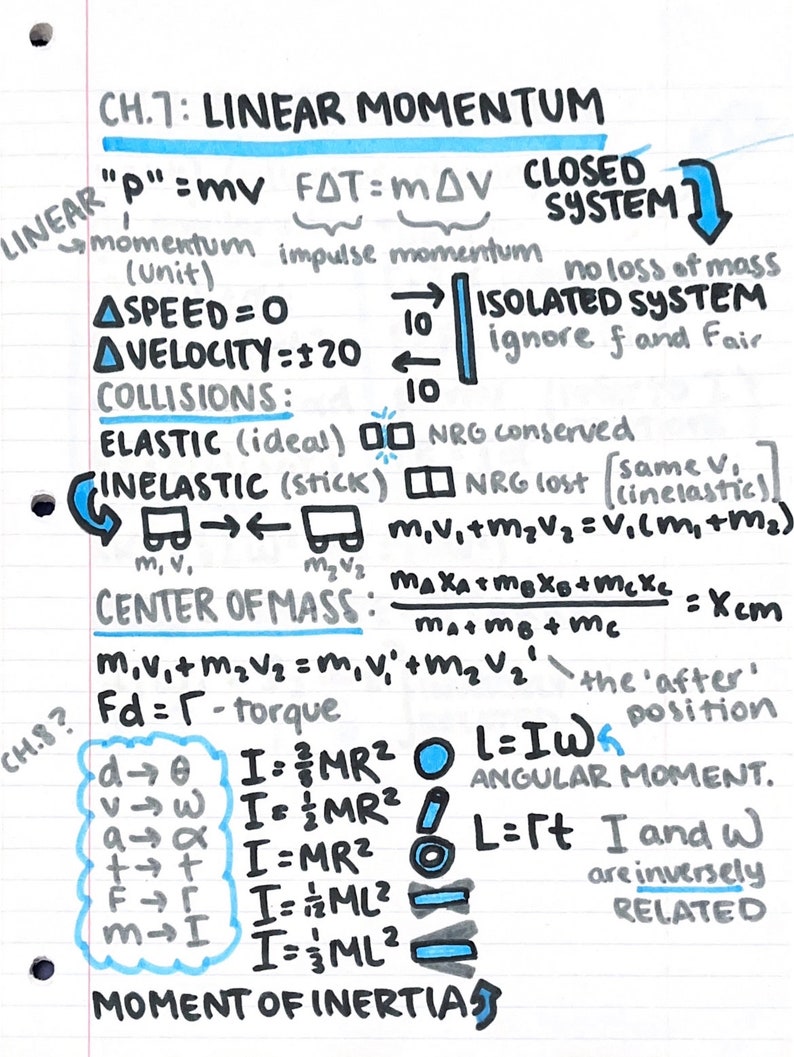 CH.7: LINEAR MOMENTUM
"p" = mv FΔT = mΔV CLOSED SYSTEM
LINEAR momentum (unit) impulse momentum
no loss of mass
ΔSPEED = 0 → 10 ISOLATED SYSTEM
ΔVELOCITY = ±20 ← 10 ignore f and Fair
COLLISIONS:
ELASTIC (ideal) NRG conserved
INELASTIC (stick) NRG lost [same v₁ (inelastic)]
→← m₁v₁+m₂v₂=v₁(m₁+m₂)
m₁v₁ m₂v₂
CENTER OF MASS: (mAxA+mBxB+mCxC)/(mA+mB+mC) = Xcm
m₁v₁+m₂v₂=m₁v₁'+m₂v₂' the 'after' position
Fd = Γ - torque
CH.8?
d → θ
v → ω
a → α
t → t
F → Γ
m → I
I = ⅖MR²
I = ½MR²
I = MR²
I = 1/12 ML²
I = ⅓ML²
MOMENT OF INERTIA
L = Iω
ANGULAR MOMENT.
L = Γt I and ω
are inversely
RELATED